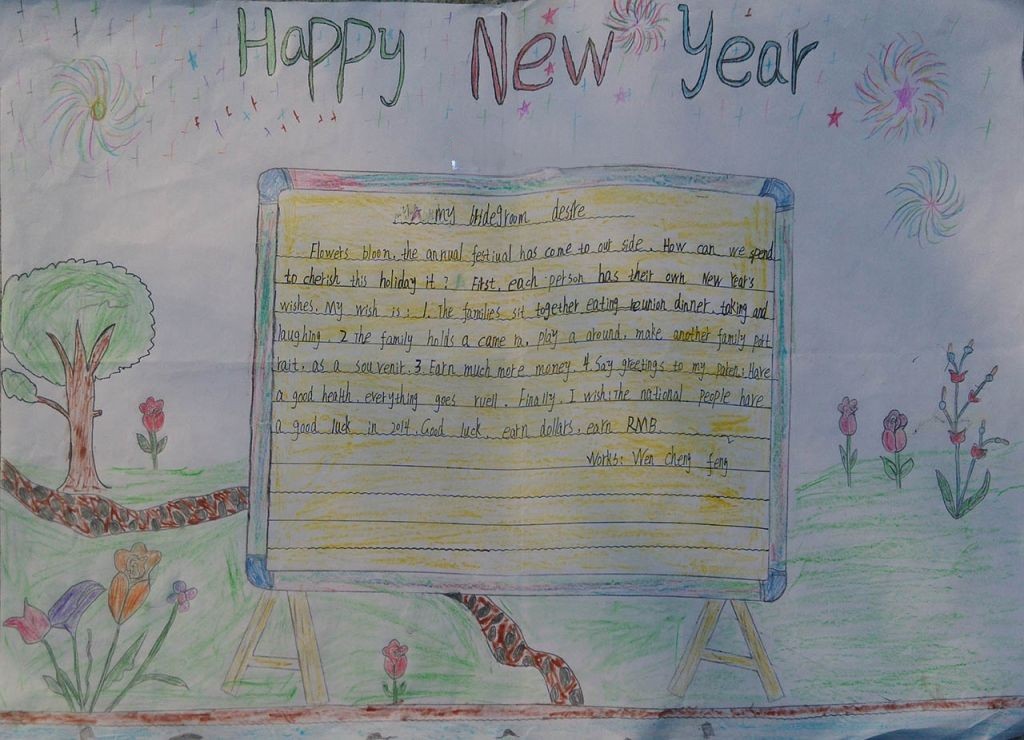 Happy New Year
my bridegroom desire
Flowers bloon, the annual festival has come to out side. How can we spend
to cherish this holiday it? First, each person has their own New Year's
wishes. My wish is: 1. The families sit together eating reunion dinner, taking and
laughing. 2 The family holds a came ra, play a around, make another family port
rait, as a souvenir. 3. Earn much more money. 4. Say greetings to my paten: Have
a good health, everything goes ruell. Finally, I wish: the national people have
a good luck in 2014. Good luck, earn dollars, earn RMB.
Works: Wen cheng feng